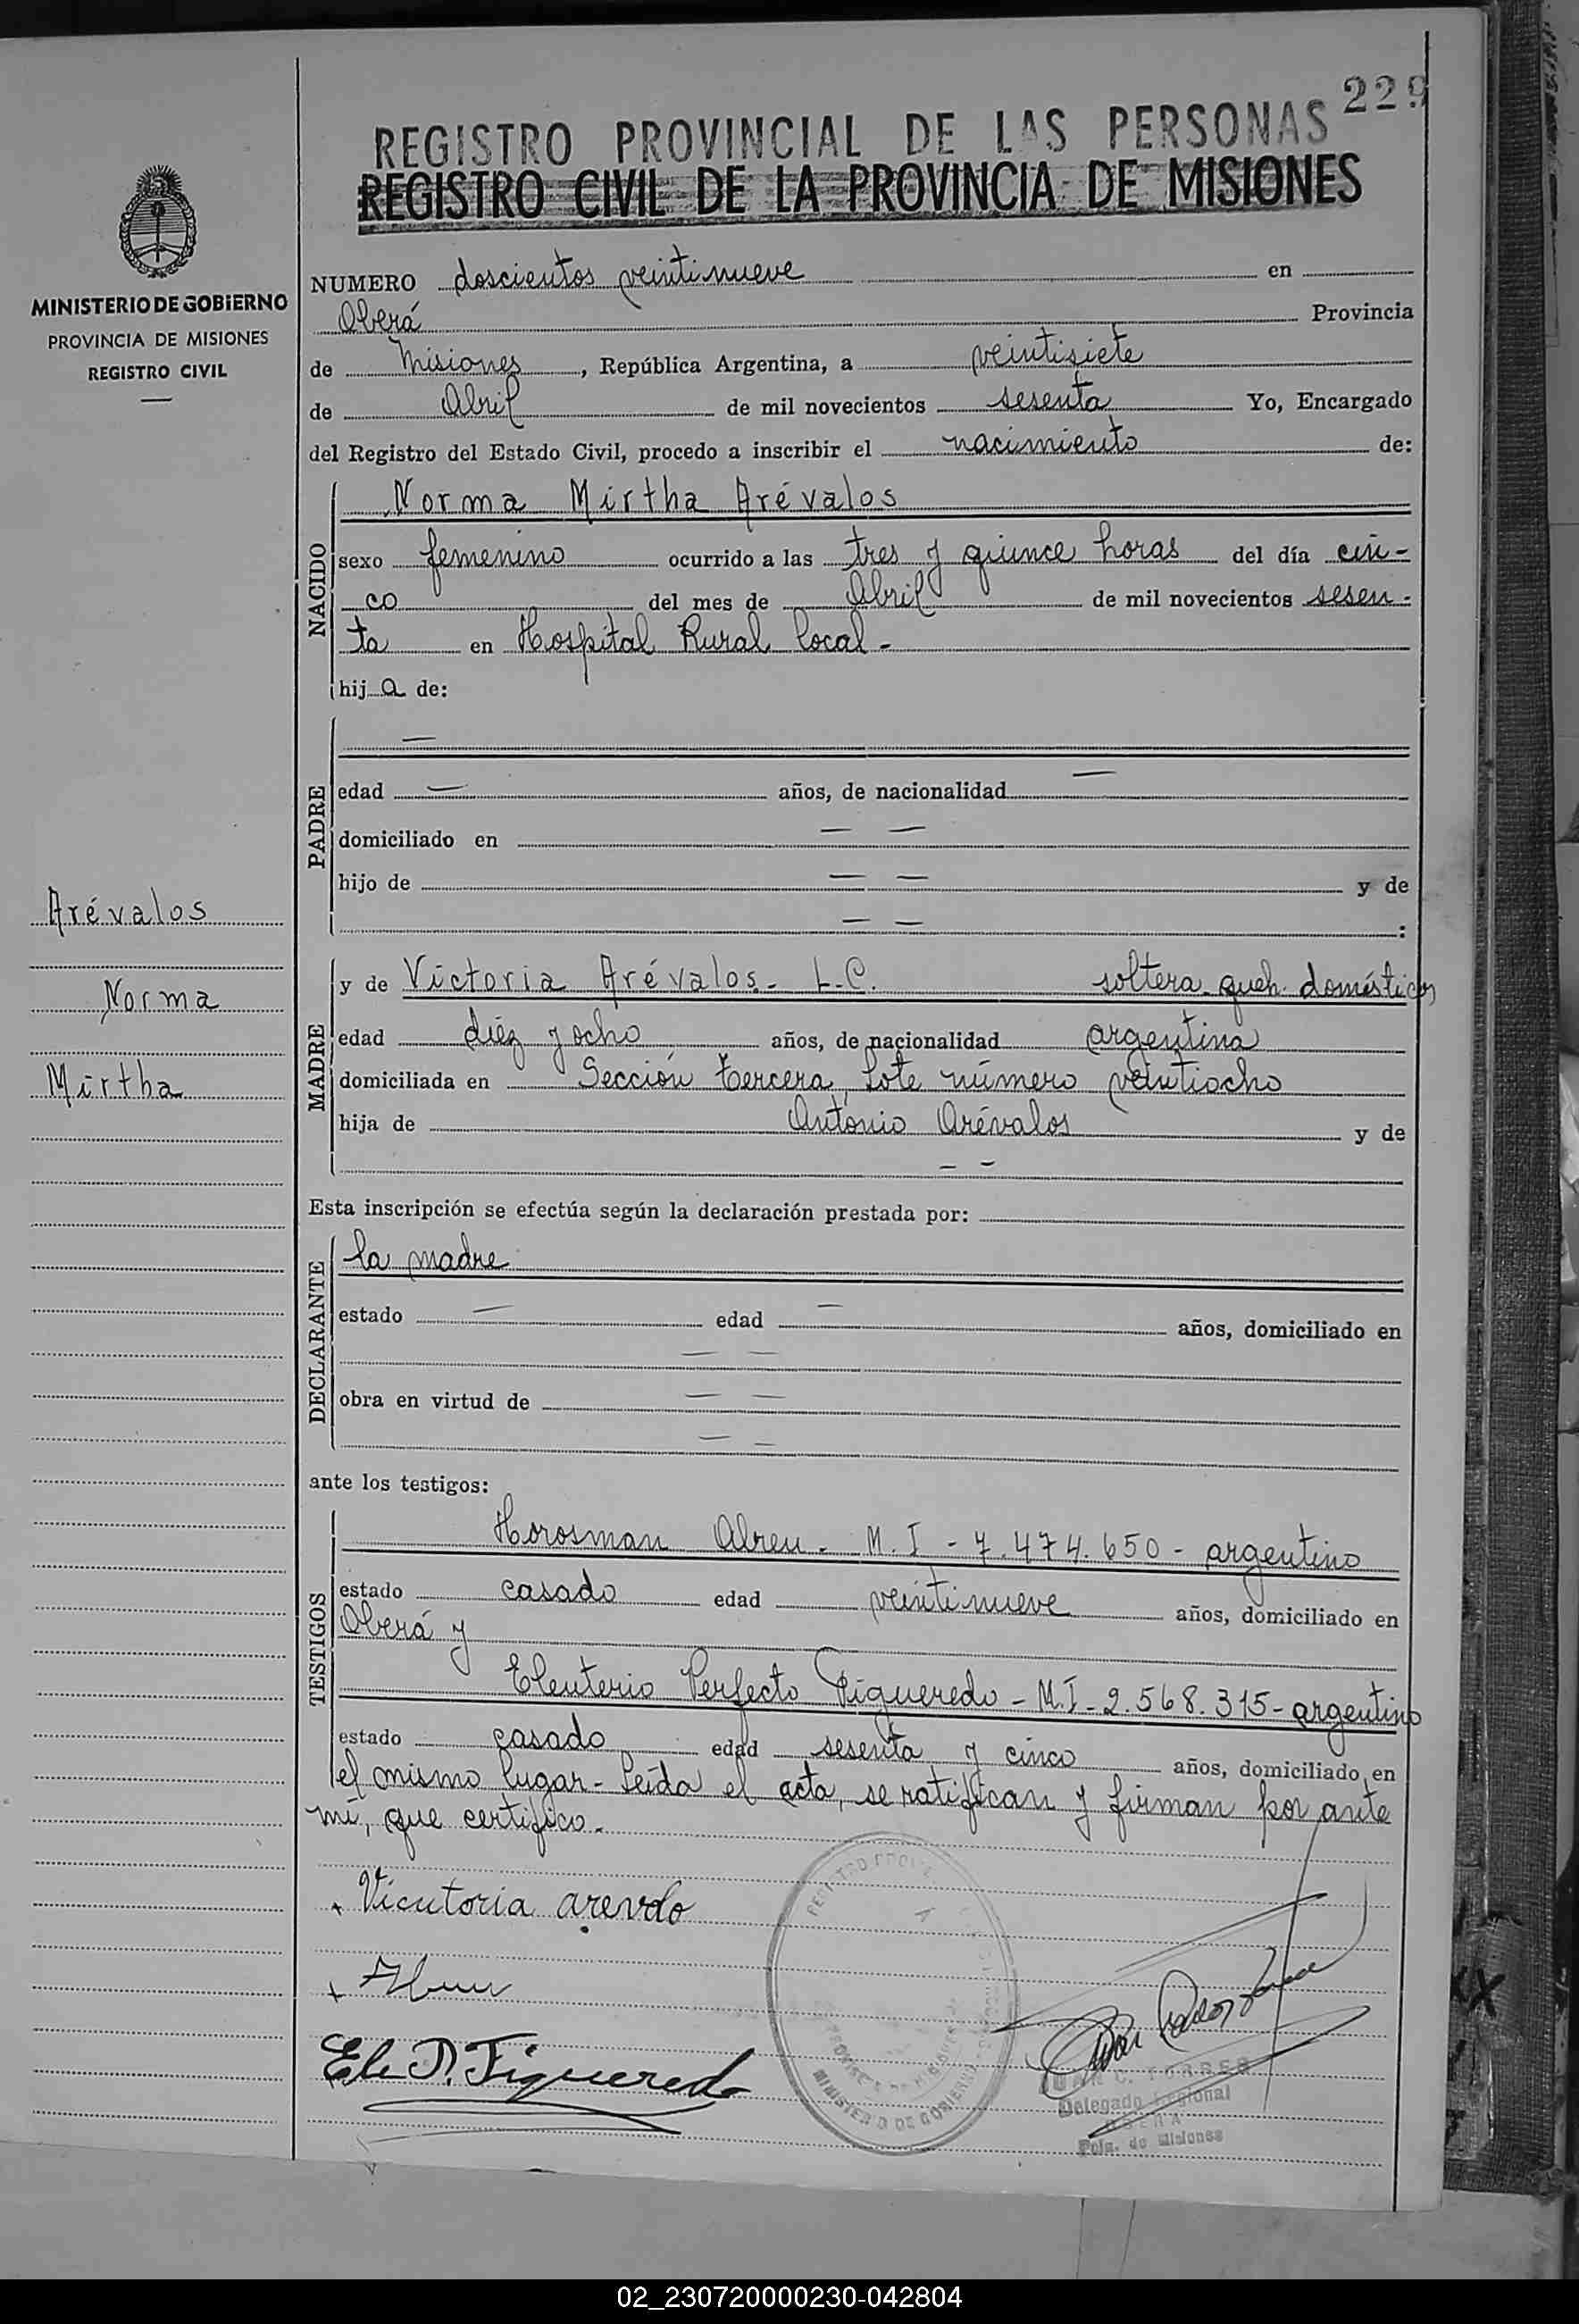 229
REGISTRO PROVINCIAL DE LAS PERSONAS
REGISTRO CIVIL DE LA PROVINCIA DE MISIONES
MINISTERIO DE GOBIERNO
PROVINCIA DE MISIONES
REGISTRO CIVIL
NUMERO doscientos veintinueve en
Oberá Provincia
de Misiones, República Argentina, a veintisiete
de Abril de mil novecientos sesenta Yo, Encargado
del Registro del Estado Civil, procedo a inscribir el nacimiento de:
NACIDO
Norma Mirtha Arévalos
sexo femenino ocurrido a las tres y quince horas del día cin-
co del mes de Abril de mil novecientos sesen-
ta en Hospital Rural local-
hija de:
PADRE
—
edad — años, de nacionalidad —
domiciliado en — —
hijo de — — y de
— — :
Arévalos
Norma
Mirtha
MADRE
y de Victoria Arévalos.- L.C. soltera queh. domésticos
edad diéz y ocho años, de nacionalidad argentina
domiciliada en Sección tercera, Lote número veintiocho
hija de Antonio Arévalos y de
- -
Esta inscripción se efectúa según la declaración prestada por:
DECLARANTE
la madre
estado — edad — años, domiciliado en
— —
obra en virtud de — —
— —
ante los testigos:
TESTIGOS
Horosman Abreu.- M.I - 7.474.650 - argentino
estado casado edad veintinueve años, domiciliado en
Oberá y
Eleuterio Perfecto Figueredo - M.I - 2.568.315 - argentino
estado casado edad sesenta y cinco años, domiciliado en
el mismo lugar - Leída el acta, se ratifican y firman por ante
mi, que certifico.
Vicutoria arevdo
Ele P. Figueredo
MINISTERIO DE GOBIERNO
JUAN C. TORRES
Delegado Regional
OBERA
Pcia. de Misiones
02_230720000230-042804